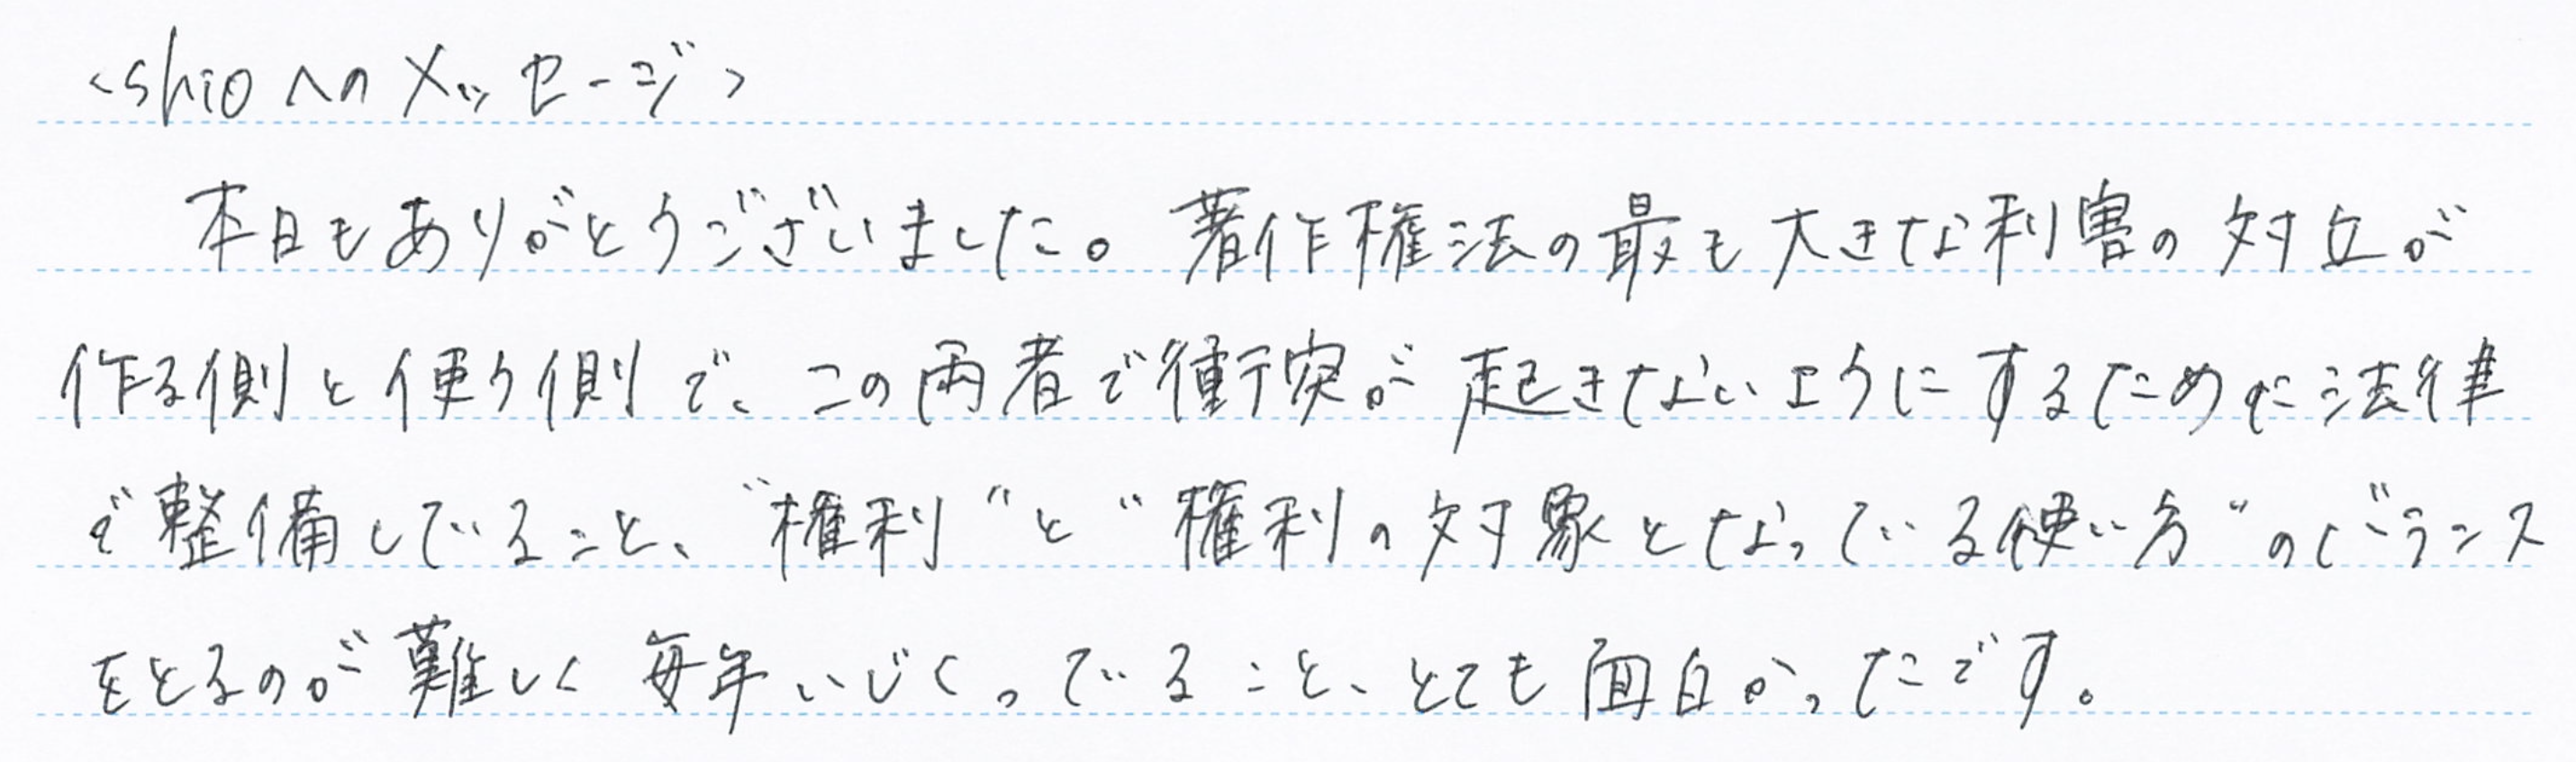 <shioへのメッセージ>
本日もありがとうございました。著作権法の最も大きな利害の対立が
作る側と使う側で、この両者で衝突が起きないようにするために法律
で整備していること、"権利"と"権利の対象となっている使い方"のバランス
をとるのが難しく毎年いじくっていること、とても面白かったです。